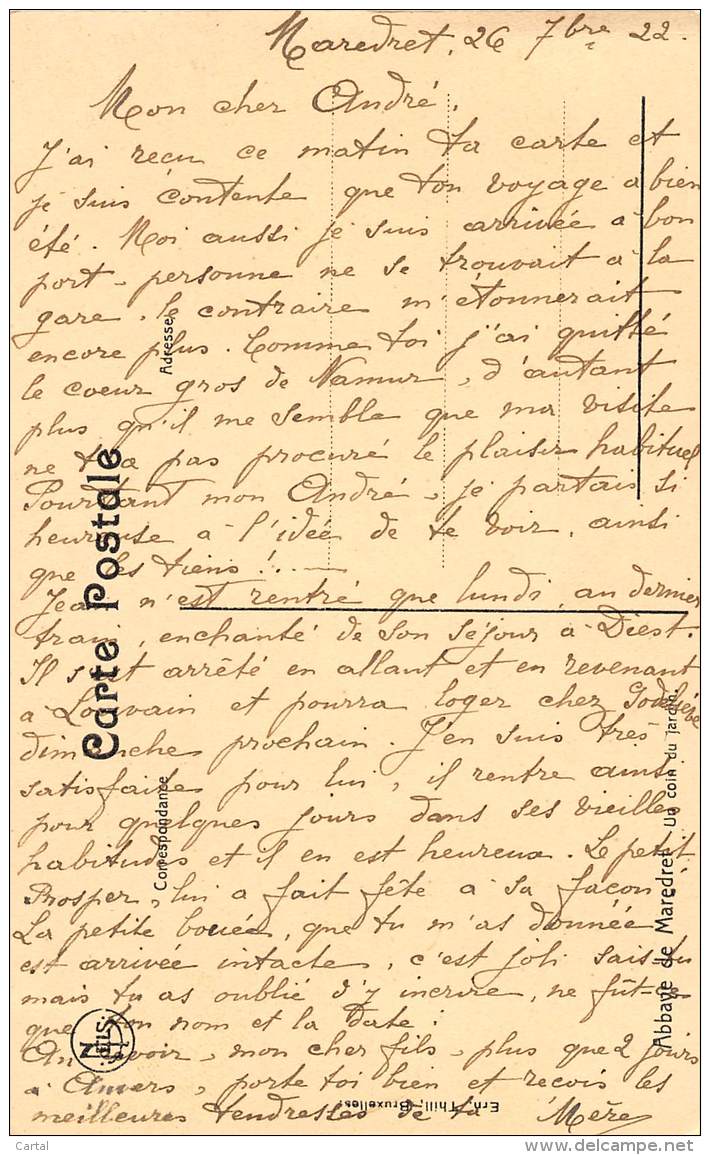 Maredret, 26 7bre 22.
Mon cher André,
J'ai reçu ce matin ta carte et
je suis contente que ton voyage a bien
été. Moi aussi je suis arrivée à bon
port - personne ne se trouvait à la
gare. le contraire m'étonnerait
encore plus. Comme toi j'ai quitté
le coeur gros de Namur, d'autant
plus qu'il me semble que ma visite
ne t'a pas procuré le plaisir habituel
Pourtant mon André, je partais si
heureuse à l'idée de te voir, ainsi
que les tiens !..
Jean n'est rentré que lundi, au dernier
train, enchanté de son séjour à Diest.
Il s'est arrêté en allant et en revenant
à Louvain et pourra loger chez Godelieve
dimanche prochain. J'en suis très
satisfaite pour lui, il rentre ainsi
pour quelques jours dans ses vieilles
habitudes et il en est heureux. Le petit
Prosper, lui a fait fête à sa façon
La petite bouée, que tu m'as donnée
est arrivée intacte, c'est joli sais-tu
mais tu as oublié d'y incrire, ne fût-ce
que ton nom et la date !
Au revoir, mon cher fils, plus que 2 jours
à Anvers, porte toi bien et reçois les
meilleures tendresses de ta Mère
Carte Postale
Correspondance
Adresse
Abbaye de Maredret - Un coin du jardin.
Ern. Thill, Bruxelles
NELS
Cartal
www.delcampe.net